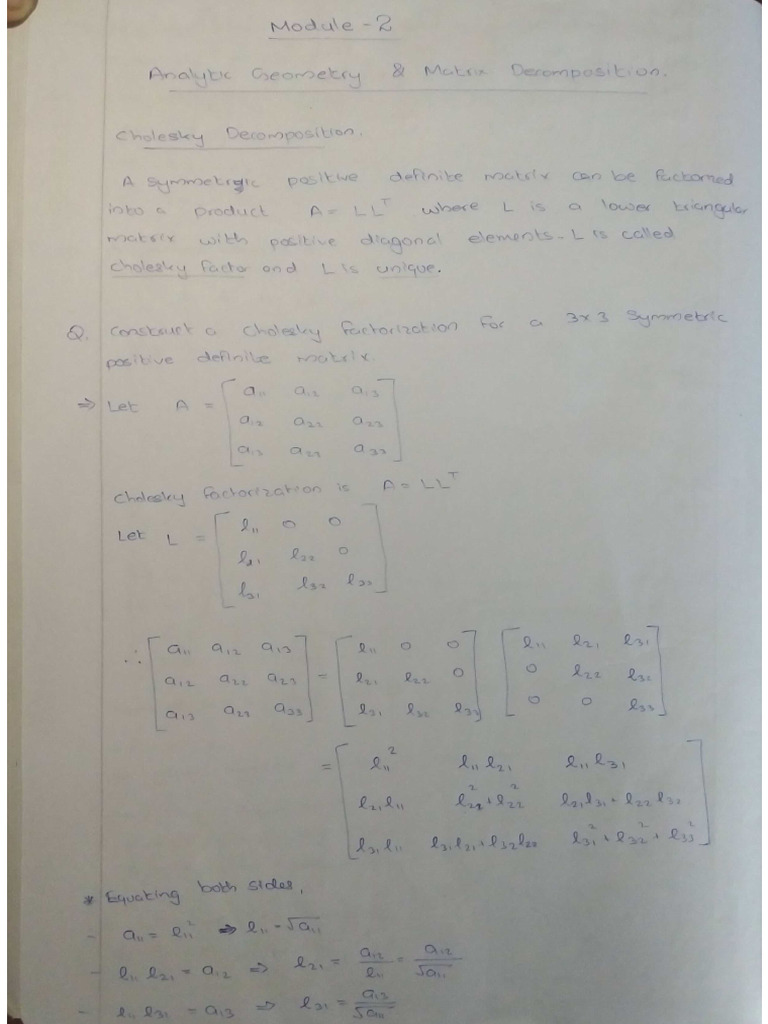 Module - 2
Analytic Geometry & Matrix Decomposition.
Cholesky Decomposition.
A symmetric positive definite matrix can be factorned
into a product A = LLᵀ where L is a lower triangular
matrix with positive diagonal elements. L is called
Cholesky factor and L is unique.
Q. Construct a Cholesky factorization for a 3x3 symmetric
positive definite matrix.
⇒ Let A = [ a₁₁ a₁₂ a₁₃
a₁₂ a₂₂ a₂₃
a₁₃ a₂₃ a₃₃ ]
Cholesky factorization is A = LLᵀ
Let L = [ l₁₁ 0 0
l₂₁ l₂₂ 0
l₃₁ l₃₂ l₃₃ ]
∴ [ a₁₁ a₁₂ a₁₃ ] = [ l₁₁ 0 0 ] [ l₁₁ l₂₁ l₃₁ ]
[ a₁₂ a₂₂ a₂₃ ] [ l₂₁ l₂₂ 0 ] [ 0 l₂₂ l₃₂ ]
[ a₁₃ a₂₃ a₃₃ ] [ l₃₁ l₃₂ l₃₃ ] [ 0 0 l₃₃ ]
= [ l₁₁² l₁₁ l₂₁ l₁₁ l₃₁
l₂₁ l₁₁ l₂₁² + l₂₂² l₂₁ l₃₁ + l₂₂ l₃₂
l₃₁ l₁₁ l₃₁ l₂₁ + l₃₂ l₂₂ l₃₁² + l₃₂² + l₃₃² ]
* Equating both sides,
- a₁₁ = l₁₁² ⇒ l₁₁ = √a₁₁
- l₁₁ l₂₁ = a₁₂ ⇒ l₂₁ = a₁₂/l₁₁ = a₁₂/√a₁₁
- l₁₁ l₃₁ = a₁₃ ⇒ l₃₁ = a₁₃/√a₁₁